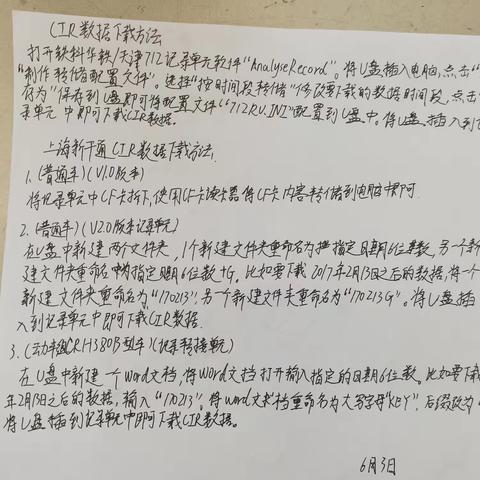 CIR数据下载方法
打开铁科华铁/天津712记录单元软件"AnalyseRecord"。将U盘插入电脑,点击"
"制作转储配置文件"。选择"按时间段转储"修改要下载的数据时间段,点击
存为"保存到U盘即可将配置文件"712RU.INI"配置到U盘中。将U盘插入到
录单元中即可下载CIR数据。
上海新干通CIR数据下载方法.
1.(普通车)(V1.0版本)
将记录单元中CF卡拆下,使用CF卡读卡器将CF卡内容转储到电脑中即可.
2.(普通车)(V2.0版本记录单元)
在U盘中新建两个文件夹,1个新建文件夹重命名为指定日期6位基数,另一个新
建文件夹重命名为指定日期6位数+G。比如要下载2017年2月13日之后的数据,将一个
新建文件夹重命名为"170213",另一个新建文件夹重命名为"170213G"。将U盘插
入到记录单元中即可下载CIR数据.
3.(动车组CRH380B型车)(记录转接单元)
在U盘中新建一个Word文档,将Word文档打开输入指定的日期6位数。比如要下载
年2月13日之后的数据,输入"170213"。将word文档重命名为大写字母"KEY",后缀改为
将U盘插到记录单元中即可下载CIR数据。
6月3日